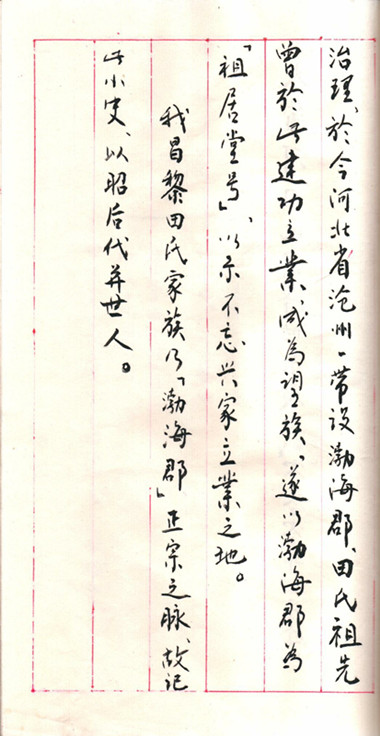 治理、於今河北省沧州一带设渤海郡、田氏祖先
曾於此建功立業成為望族、遂以渤海郡為
「祖居堂号」、以示不忘兴家立業之地。
我昌黎田氏家族乃「渤海郡」正宗之脉、故记
此小史、以昭后代并世人。